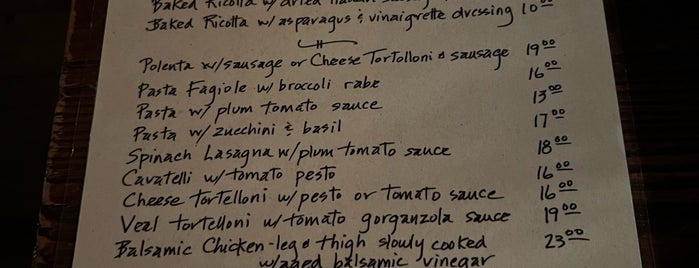 Baked Ricotta w/dried Italian
Baked Ricotta w/asparagus & vinaigrette dressing 10.00
Polenta w/sausage or Cheese Tortolloni & sausage 19.00
Pasta Fagiole w/broccoli rabe 16.00
Pasta w/ plum tomato sauce 13.00
Pasta w/zucchini & basil 17.00
Spinach Lasagna w/plum tomato sauce 18.00
Cavatelli w/tomato pesto 16.00
Cheese tortelloni w/pesto or tomato sauce 16.00
Veal tortelloni w/tomato gorganzola sauce 19.00
Balsamic Chicken-leg & thigh slowly cooked 23.00
w/aged balsamic vinegar